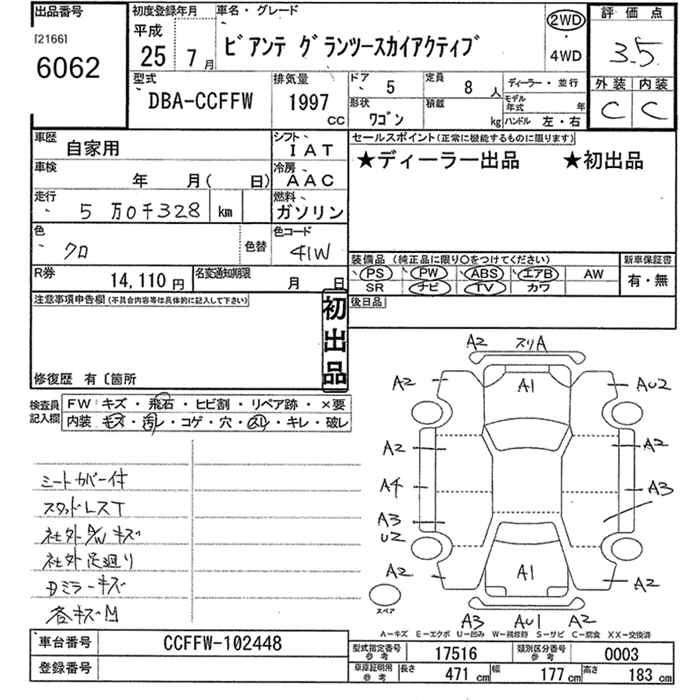 出品番号 初度登録年月 車名・グレード 評価点
[2166] 平成 ビアンテ グランツースカイアクティブ 2WD
6062 25 7月 ・ 3.5
4WD
型式 排気量 ドア 5 定員 8人 ディーラー・並行 外装 内装
DBA-CCFFW 1997 CC 形状 ワゴン 積載 kg モデル年式 年 C C
ハンドル 左・右
車歴 自家用 シフト IAT セールスポイント(正常に機能するものに限ります)
車検 年 月( 日) 冷房 AAC ★ディーラー出品 ★初出品
走行 5万0千328 km 燃料 ガソリン
色 クロ 色替 色コード 41W
装備品 (純正品に限り○をつけてください) 新車保証書
PS PW ABS エアB AW 有・無
SR ナビ TV カワ
R券 14,110円 名変通知期限 月 日
後日品
注意事項申告欄(不具合内容等は具体的に記入して下さい)
初出品
修復歴 有〔箇所
検査員記入欄 FW キズ・飛石・ヒビ割・リペア跡・×要
内装 キズ・汚レ・コゲ・穴・スレ・キレ・破レ
シートカバー付
スタッドレスT
社外A/Wキズ
社外足廻り
Dミラーキズ
各キズM
A2 スリA
A2 A1 AU2
A2 A2
A4 A3
A3
U2
A2 A1 A2
スペア
A3 AU1 A2
A-キズ E-エクボ U-凹み W-補修跡 S-サビ C-腐食 XX-交換済
車台番号 CCFFW-102448
登録番号
型式指定番号 参考 17516 類別区分番号 参考 0003
車庫証明用 参考 長さ 471 cm 幅 177 cm 高さ 183 cm